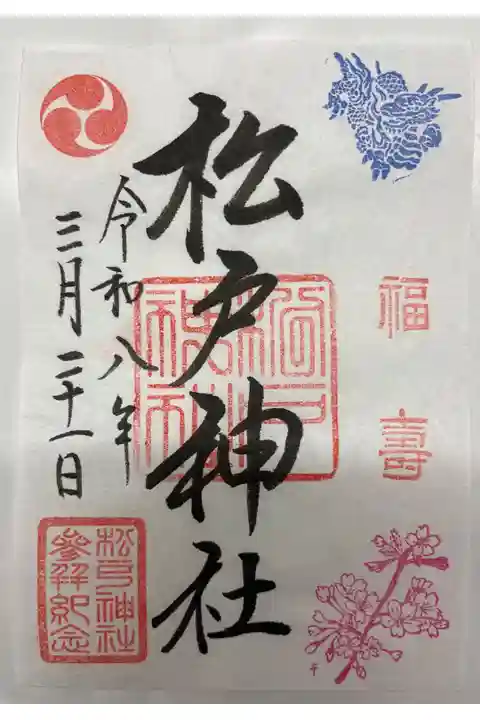 福壽
松戸神社
松戸神社
令和八年
三月二十一日
松戸神社
参拝紀念